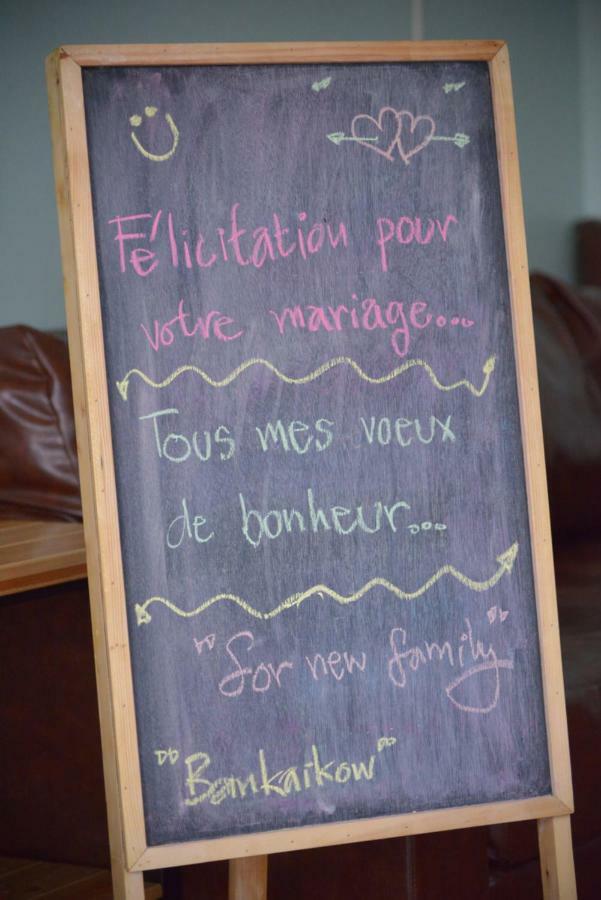 Félicitation pour
votre mariage...
Tous mes voeux
de bonheur...
"for new family"
"Bamkaikow"